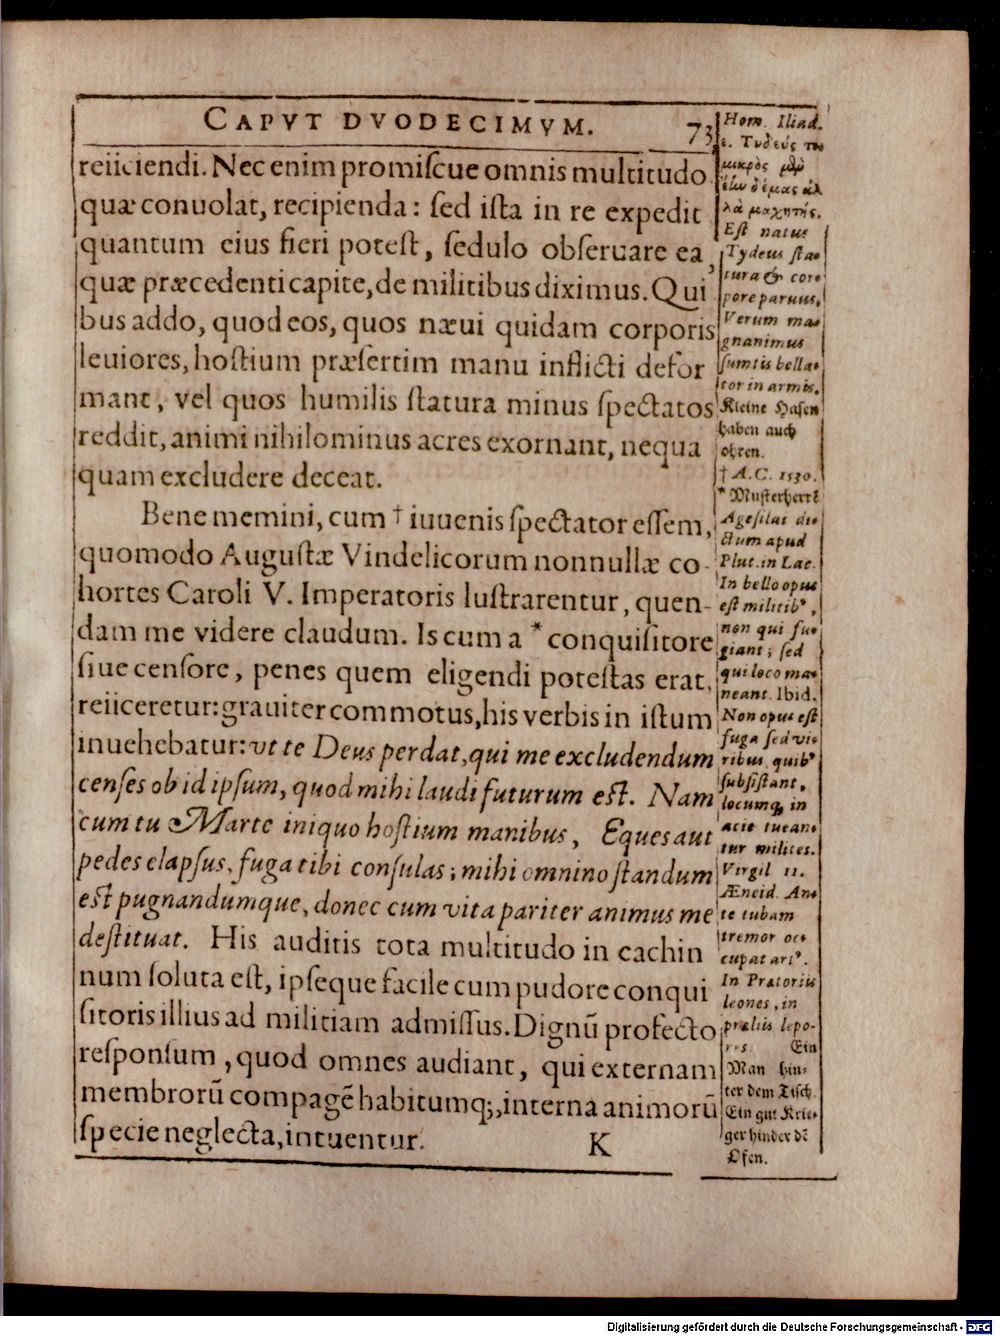 CAPVT DVODECIMVM. 73
reiiciendi. Nec enim promiſcue omnis multitudo
quæ conuolat, recipienda: ſed iſta in re expedit
quantum eius fieri poteſt, ſedulo obſeruare ea,
quæ præcedenti capite, de militibus diximus. Qui
bus addo, quod eos, quos næui quidam corporis
leuiores, hoſtium præſertim manu inflicti defor
mant, vel quos humilis ſtatura minus ſpectatos
reddit, animi nihilominus acres exornant, nequa
quam excludere deceat.
Bene memini, cum † iuuenis ſpectator eſſem,
quomodo Auguſtæ Vindelicorum nonnullæ co-
hortes Caroli V. Imperatoris luſtrarentur, quen-
dam me videre claudum. Is cum a * conquiſitore
ſiue cenſore, penes quem eligendi poteſtas erat,
reiiceretur: grauiter commotus, his verbis in iſtum
inuehebatur: vt te Deus perdat, qui me excludendum
cenſes ob id ipſum, quod mihi laudi futurum eſt. Nam
cum tu Marte iniquo hoſtium manibus, Eques aut
pedes elapſus, fuga tibi conſulas; mihi omnino ſtandum
eſt pugnandumque, donec cum vita pariter animus me
deſtituat. His auditis tota multitudo in cachin
num ſoluta eſt, ipſeque facile cum pudore conqui
ſitoris illius ad militiam admiſſus. Dignū profecto
reſponſum, quod omnes audiant, qui externam
membrorū compagē habitumq;, interna animorū
ſpecie neglecta, intuentur.
K
Hom. Iliad.
ε. Τυδεύς τοι
μικρὸς μὲν
ἔην δέμας ἀλ
λὰ μαχητής.
Eſt natus
Tydeus ſta-
tura & cor-
pore paruus,
Verum ma-
gnanimus
ſumtis bella-
tor in armis.
Kleine Haſen
haben auch
ohren.
† A.C. 1530.
* Muſterherrē
Ageſilai di-
ctum apud
Plut. in Lac.
In bello opus
eſt militibꝰ,
non qui fu-
giant; ſed
qui loco ma-
neant. Ibid.
Non opus eſt
fuga ſed vi-
ribus quibꝰ
ſubſiſtant,
locumq; in
acie tuean-
tur milites.
Virgil 11.
Æneid. An-
te tubam
tremor oc-
cupat artꝰ.
In Prætoriis
leones, in
præliis lepo-
res. Ein
Man hin-
ter dem Tiſch.
Ein gut Krie-
ger hinder dē
Ofen.
Digitalisierung gefördert durch die Deutsche Forschungsgemeinschaft - DFG